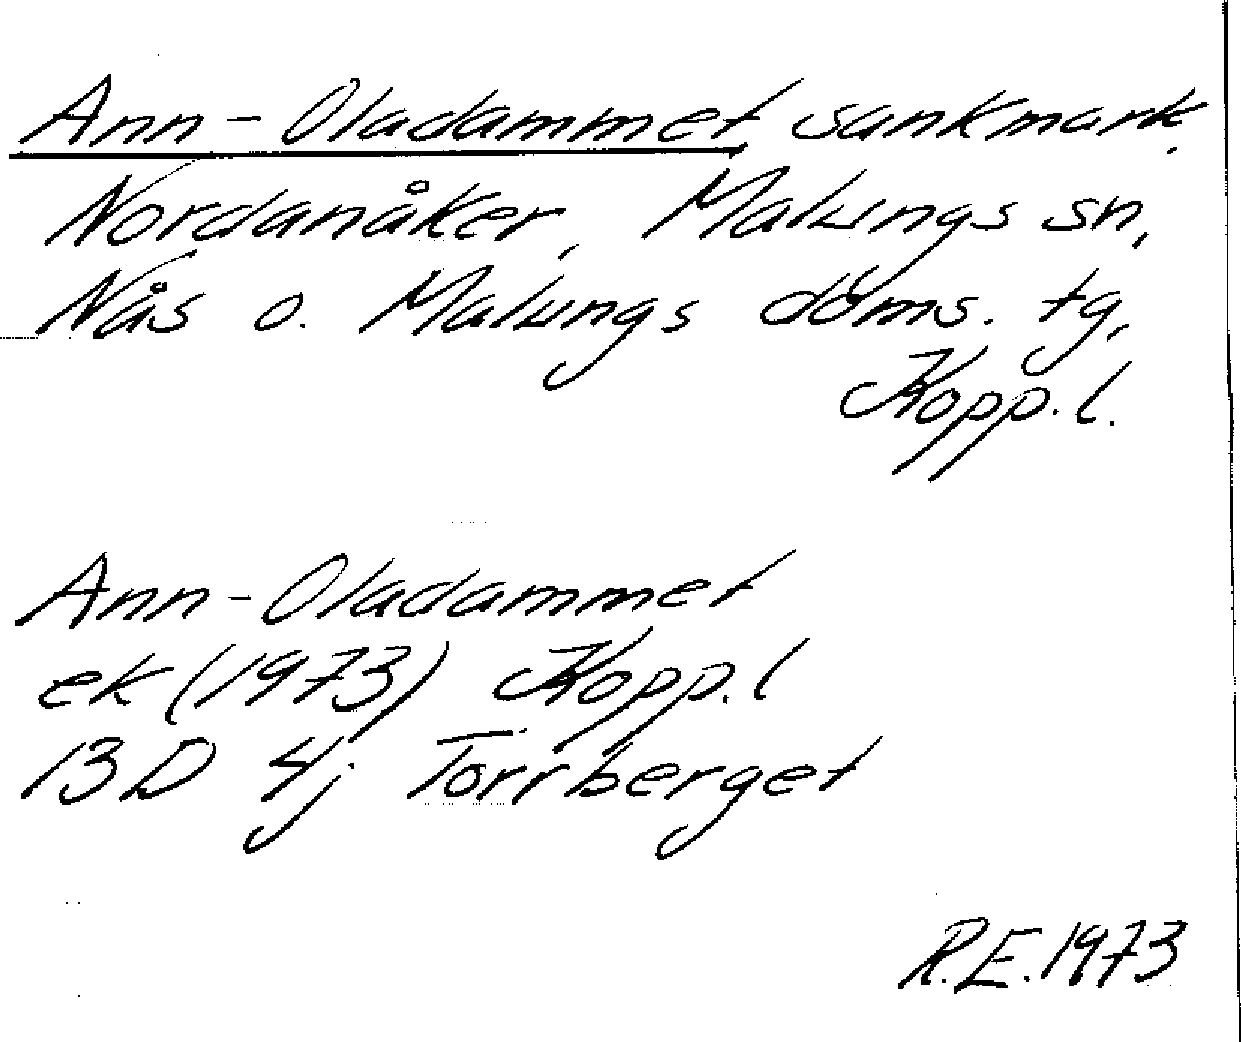 Ann-Oladammet sankmark.
Nordanåker, Malungs sn,
Nås o. Malungs döms. tg,
Kopp. l.
Ann-Oladammet
ek (1973) Kopp. l
13 D 4j Torrberget
R.E. 1973